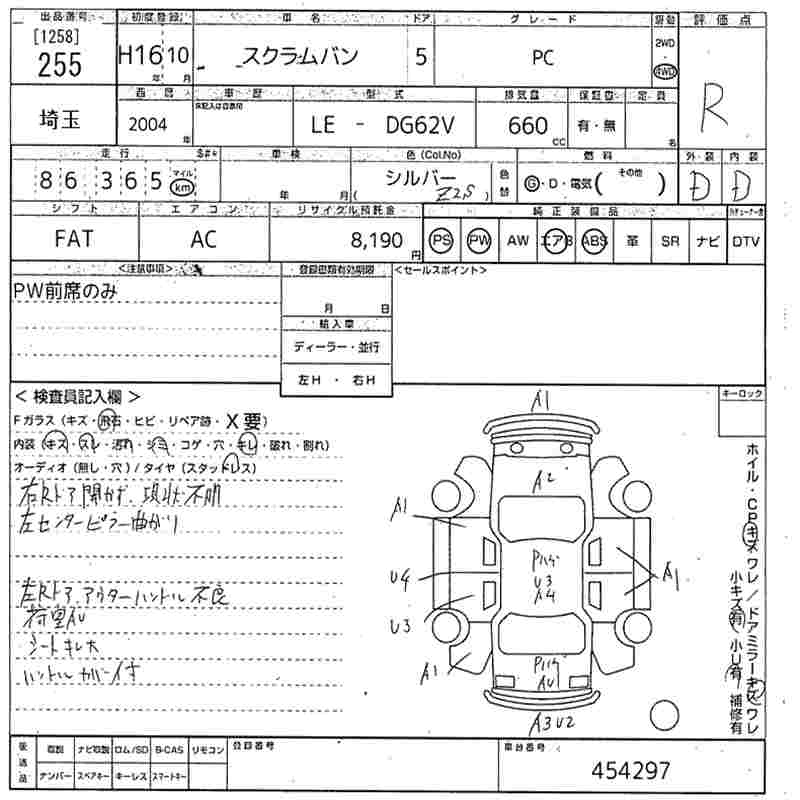 出品番号 初度登録 車名 ドア グレード 駆動 評価点
[1258]
255 H16年10月 スクラムバン 5 PC 2WD・4WD R
埼玉 西暦 車歴 型式 排気量 保証書 定員
2004年 LE - DG62V 660cc 有・無 名
走行 車検 色(Col.No) 燃料 外装 内装
86365 マイル km 年 月 シルバー Z2S 色替 G・D・電気( その他 ) D D
シフト エアコン リサイクル預託金 純正装備品
FAT AC 8,190円 PS PW AW エアB ABS 革 SR ナビ DTV
<注意事項> 登録書類有効期限 <セールスポイント>
PW前席のみ
月 日
輸入車
ディーラー・並行
左H・右H
<検査員記入欄> キーロック
Fガラス(キズ・飛石・ヒビ・リペア跡・X要)
内装(キズ・スレ・汚れ・シミ・コゲ・穴・キレ・破れ・割れ)
オーディオ(無し・穴)/タイヤ(スタッドレス)
右Rドア開かず、現状不明
左センターピラー曲がり
左Rドア、アウターハンドル不良
荷室AU
シートキレ大
ハンドルカバー付
A1
A2
A1
Pハゲ
U3
A4
U4
A1
U3
A1
Pハゲ
AU1
A3U2
ホイル・CPキズワレ/ドアミラーキズワレ
小キズ有 小U有 補修有
後送品 取説 ナビ取説 ロム/SD B-CAS リモコン 登録番号 車台番号
ナンバー スペアキー キーレス スマートキー 454297